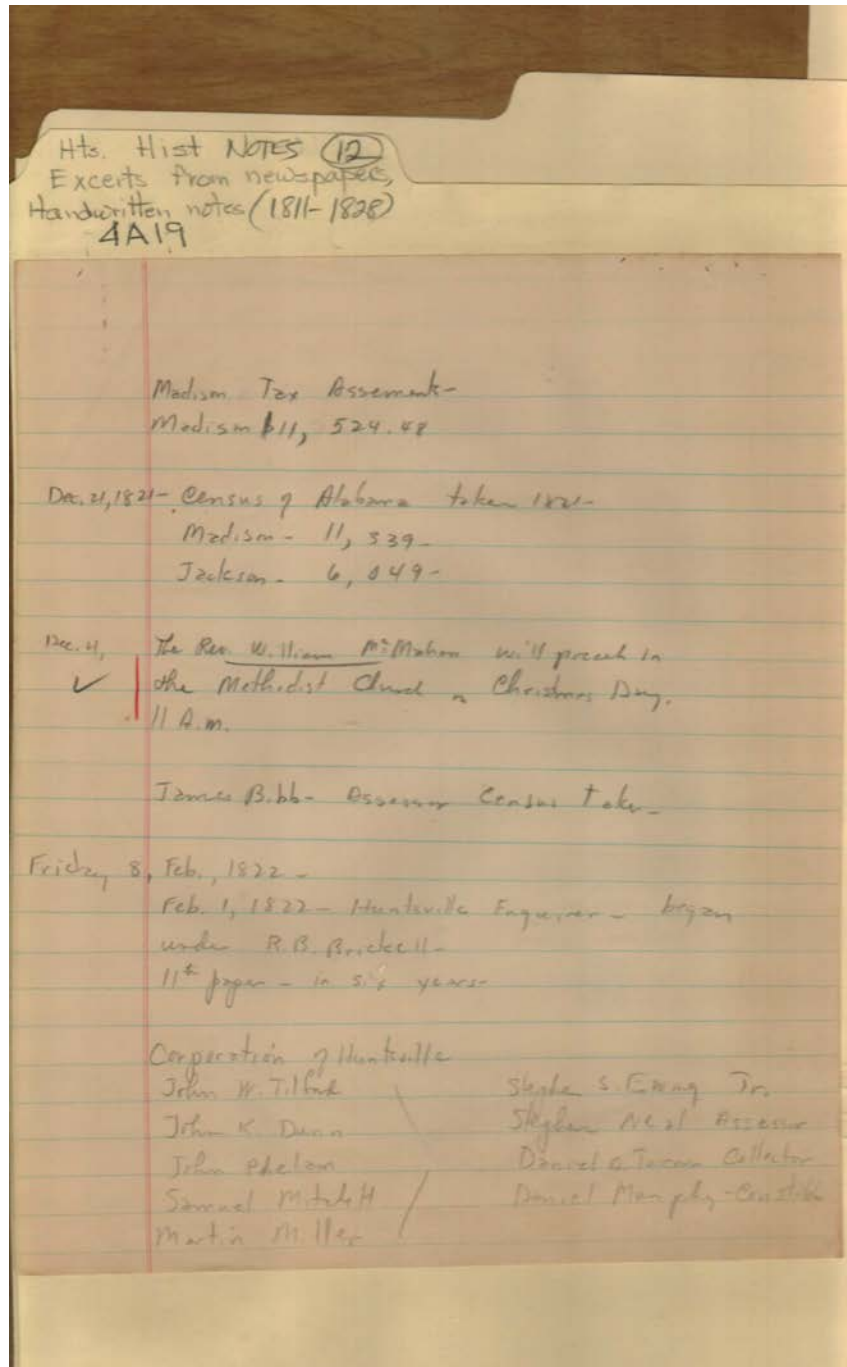 Hts. Hist NOTES 12
Excerts from newspapers,
Handwritten notes (1811-1828)
4A19
Madison Tax Assement-
Madison $11, 524.48
Dec. 21, 1821- Census of Alabama taken 1821-
Madison - 11, 539-
Jackson - 6, 049-
Dec. 21,
The Rev. William McMahon will preach in
✓ the Methodist Church on Christmas Day.
11 A.m.
James Bibb- Assessor Census taker-
Friday 8, Feb., 1822 -
Feb. 1, 1822 - Huntsville Enquirer - began
under R.B. Brickell-
11th paper - in six years-
Corporation of Huntsville
John W. Tilford Stephen S. Ewing Tr.
John K. Dunn Stephen Neal Assessor
John Phelan Daniel Collector
Samuel Mitchell Daniel Murphy-Constable
Martin Miller